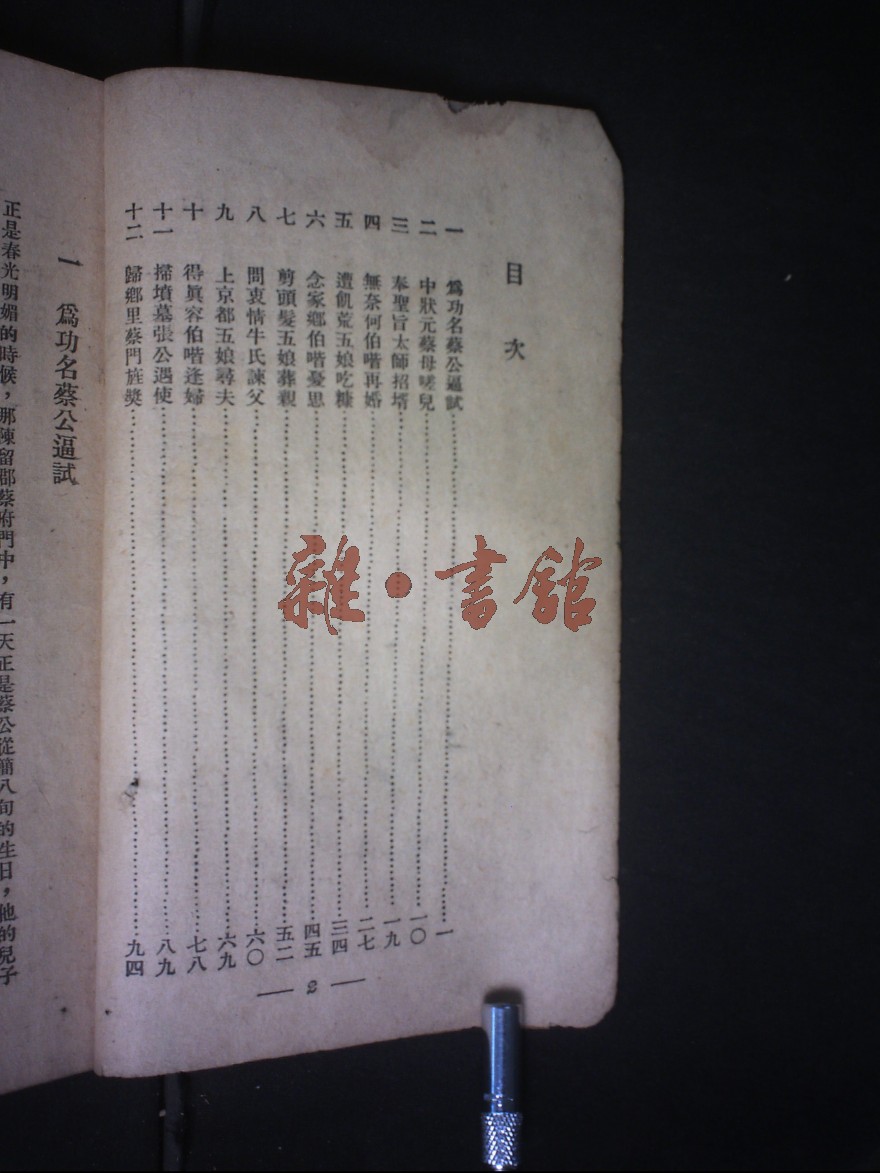 目次
一 為功名蔡公逼試 一
二 中狀元蔡母嗟兒 一〇
三 奉聖旨太師招壻 一九
四 無奈何伯喈再婚 二七
五 遭飢荒五娘吃糠 三四
六 念家鄉伯喈憂思 四五
七 剪頭髮五娘葬親 五二
八 問衷情牛氏諫父 六〇
九 上京都五娘尋夫 六九
十 得眞容伯喈逢婦 七八
十一 掃墳墓張公遇使 八九
十二 歸鄉里蔡門旌獎 九四
— 2 —
雜·書館
一 為功名蔡公逼試
正是春光明媚的時候，那陳留郡蔡府門中，有一天正是蔡公從簡八旬的生日，他的兒子